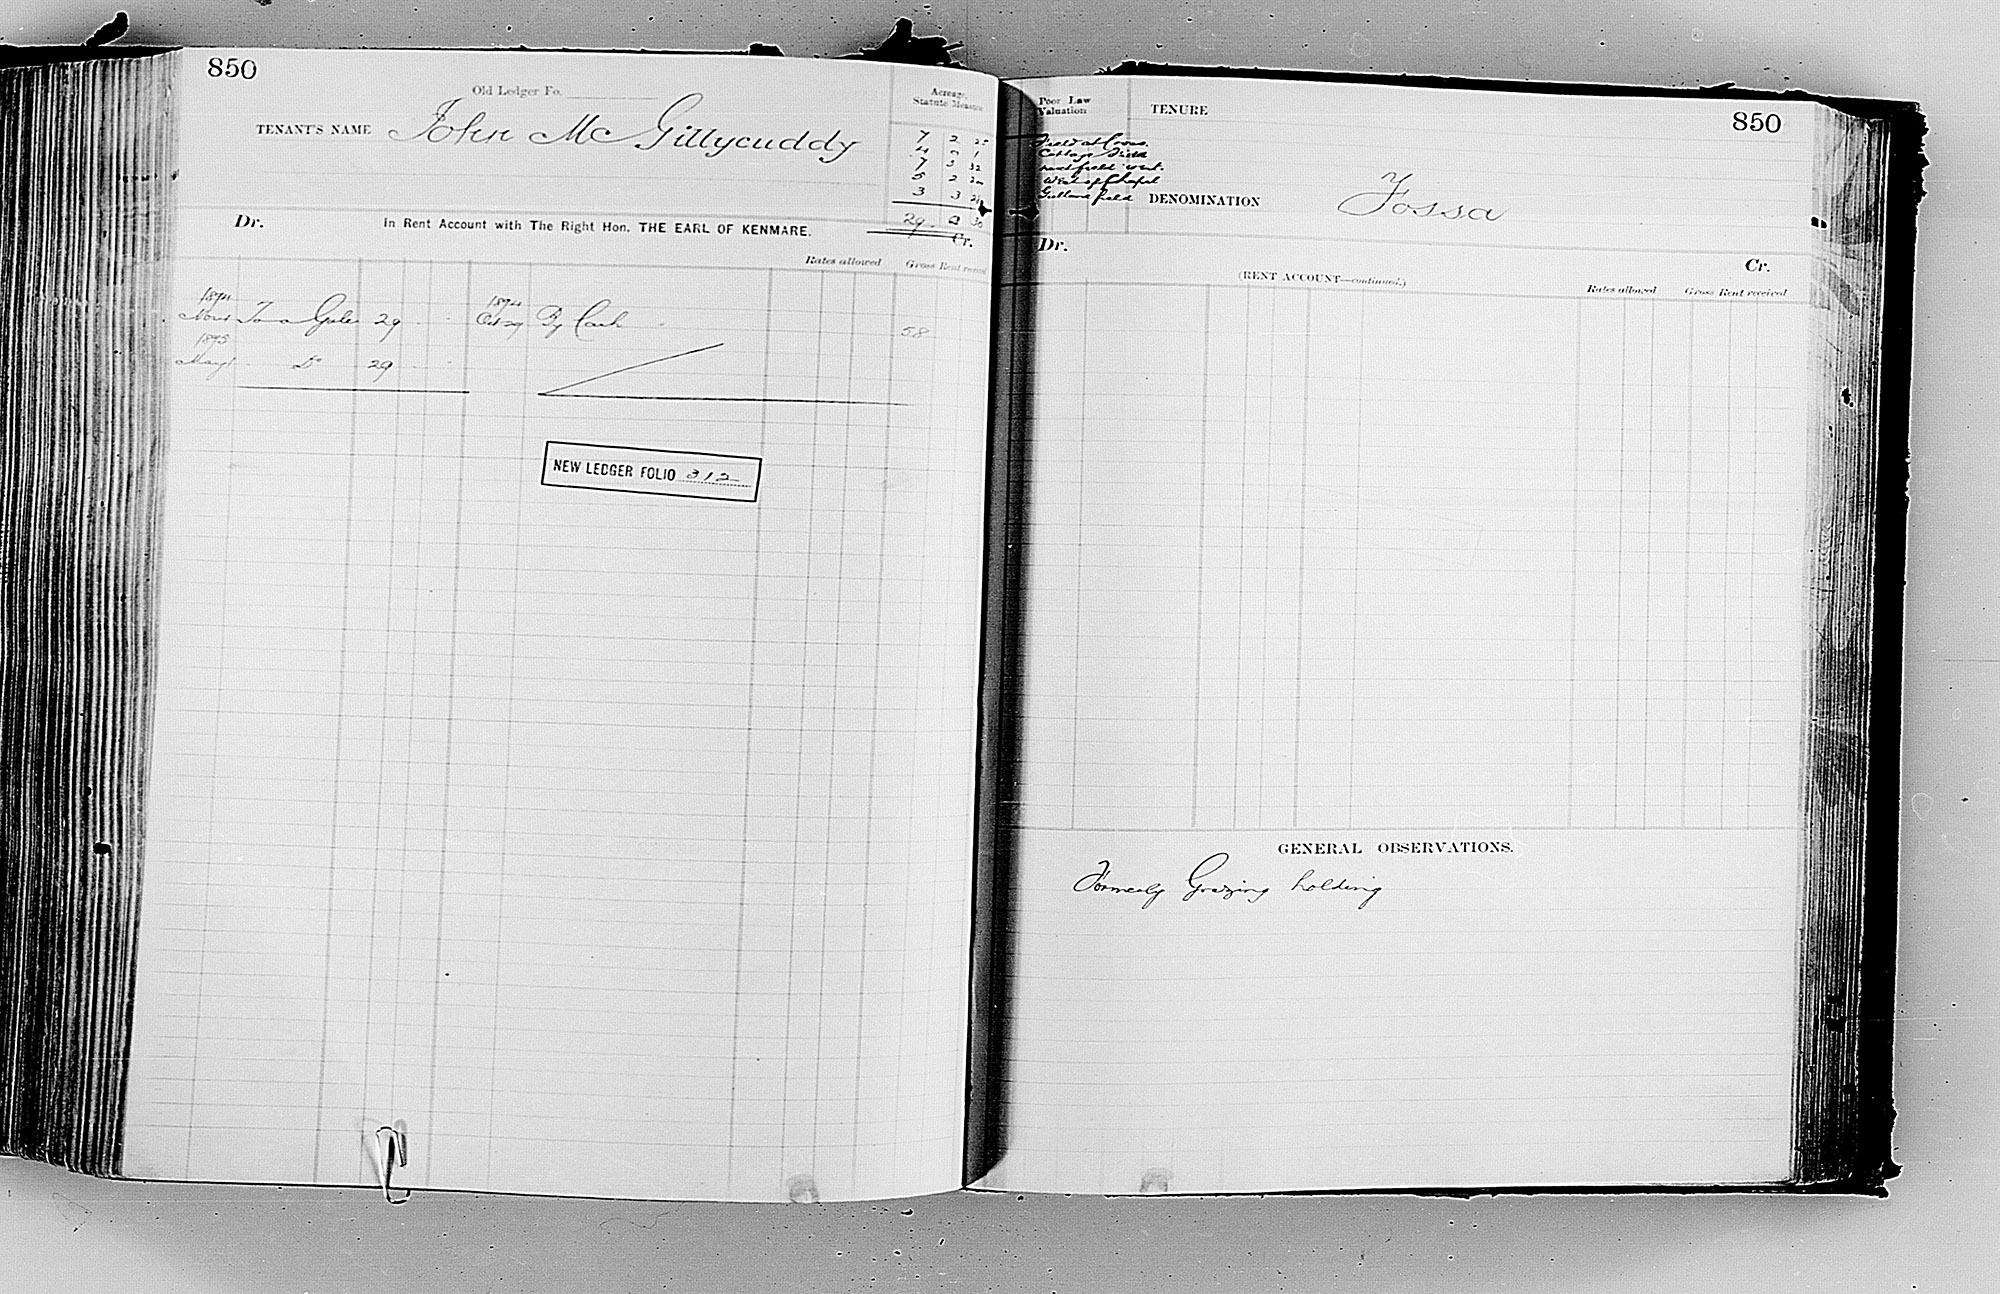 850
Old Ledger Fo.
TENANT'S NAME John Mc Gillycuddy
Acreage,
Statute Measure
7 2 25
4 1
7 3 32
5 2 20
3 3
29 30
Dr. In Rent Account with The Right Hon. THE EARL OF KENMARE. Cr.
Rates allowed Gross Rent received
1894 1894
Novr To a Gale 29 Oct 29 By Cash 58
1895
May 1 Do 29
NEW LEDGER FOLIO 312
850
Poor Law
Valuation
TENURE
Field at Cross.
Cottage Field
west.
West of Chapel
field
DENOMINATION Fossa
Dr. Cr.
(RENT ACCOUNT—continued.)
Rates allowed Gross Rent received
GENERAL OBSERVATIONS.
Formerly Grazing holding